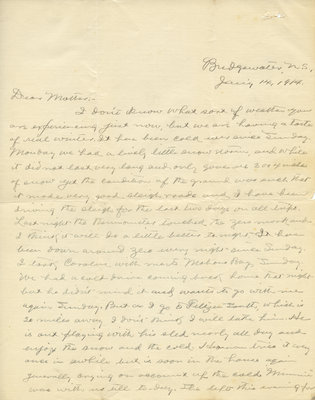 Bridgewater, N.S.,
Jan'y 14, 1914.
Dear Mother:-
I don't know what sort of weather you
are experiencing just now, but we are having a taste
of real winter. It has been cold ever since Sunday.
Monday we had a lively little snow storm, and while
it did not last very long and only gave us 2 or 3 inches
of snow yet the condition of the ground was such that
it made very good sleigh roads and I have been
driving the sleigh for the last two days on all trips.
Last night the thermometer touched to zero mark and
I think it will do a little better to-night. It has
been down around zero every night since Sunday.
I took with me to Mahone Bay Sunday
We had a cold drive coming home that night
but he didn't mind it and wants to go with me
again Sunday. But as I go to South, which is
20 miles away I don't think I will take him. He
is out playing with his sled nearly all day and
enjoys the snow and the cold. tries it
once in awhile but is soon in the house again
generally crying on account of the cold. Minnie
was with us till to-day. She left this evening for